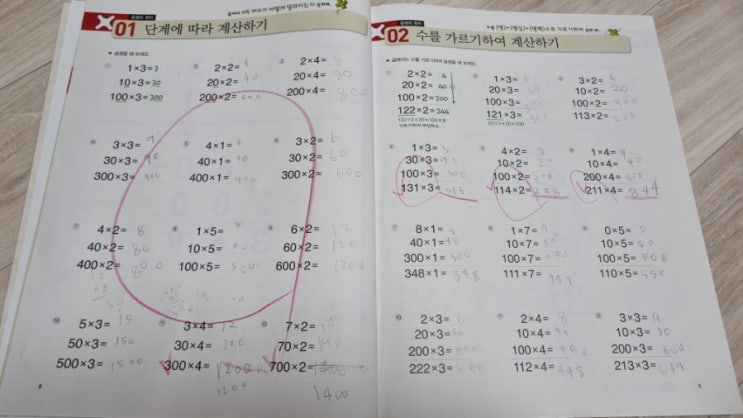 01 단계에 따라 계산하기
곱셈을 해 보세요.
① 1×3=3
10×30=30
100×3=300
② 2×2=4
20×2=40
200×2=400
③ 2×4=8
20×4=80
200×4=800
④ 3×3=9
30×3=90
300×3=900
⑤ 4×1=4
40×1=40
400×1=400
⑥ 3×2=6
30×2=60
300×2=600
⑦ 4×2=8
40×2=80
400×2=800
⑧ 1×5=
10×5=50
100×5=500
⑨ 6×2=12
60×2=120
600×2=1200
⑩ 5×3=15
50×3=150
500×3=1500
⑪ 3×4=12
30×4=120
300×4=
1200
⑫ 7×2=14
70×2=140
700×2=
1400
8
02 수를 가르기하여 계산하기
① 2×2=4
20×2=40
100×2=200
122×2=244
② 1×3=3
20×3=
100×3=300
121×3=
③ 3×2=6
10×2=20
100×2=200
113×2=226
④ 1×3=3
30×3=90
100×3=300
131×3=
⑤ 4×2=8
10×2=20
100×2=200
114×2=228
⑥ 1×4=4
10×4=40
200×4=800
211×4=844
⑦ 8×1=8
40×1=40
300×1=300
348×1=348
⑧ 1×7=
10×7=
100×7=
111×7=
⑨ 0×5=0
10×5=50
100×5=500
110×5=550
⑩ 2×3=6
20×3=60
200×3=
222×3=666
⑪ 2×4=8
10×4=40
100×4=
112×4=448
⑫ 3×3=9
10×3=30
200×3=600
213×3=